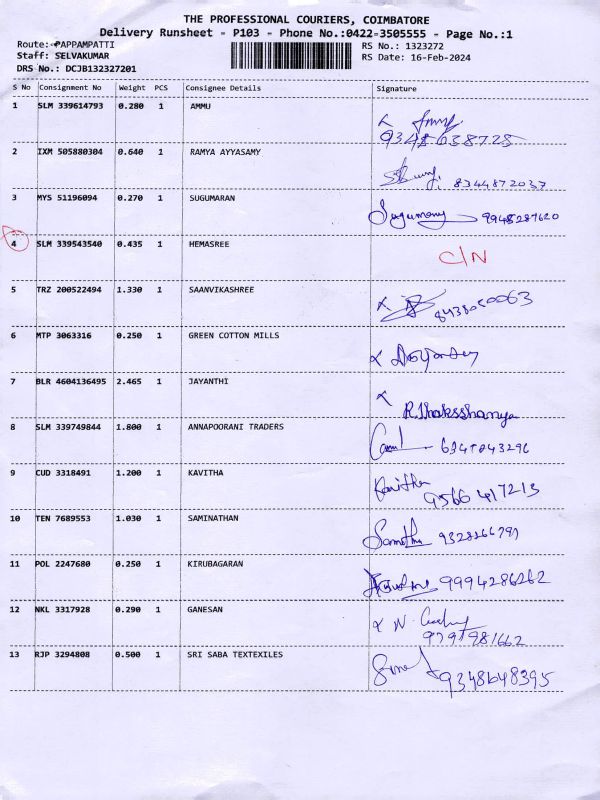 THE PROFESSIONAL COURIERS, COIMBATORE
Delivery Runsheet - P103 - Phone No.:0422-3505555 - Page No.:1
Route: PAPPAMPATTI RS No.: 1323272
Staff: SELVAKUMAR RS Date: 16-Feb-2024
DRS No.: DCJB132327201
S No Consignment No Weight PCS Consignee Details Signature
1 SLM 339614793 0.280 1 AMMU
2 IXM 505880304 0.640 1 RAMYA AYYASAMY
8344872037
3 MYS 51196094 0.270 1 SUGUMARAN
4 SLM 339543540 0.435 1 HEMASREE C/N
5 TRZ 200522494 1.330 1 SAANVIKASHREE
6 MTP 3063316 0.250 1 GREEN COTTON MILLS
7 BLR 4604136495 2.465 1 JAYANTHI
8 SLM 339749844 1.800 1 ANNAPOORANI TRADERS
9 CUD 3318491 1.200 1 KAVITHA
Kavitha
9566 417213
10 TEN 7689553 1.030 1 SAMINATHAN
11 POL 2247680 0.250 1 KIRUBAGARAN
9994286262
12 NKL 3317928 0.290 1 GANESAN
13 RJP 3294808 0.500 1 SRI SABA TEXTEXILES
9348648395